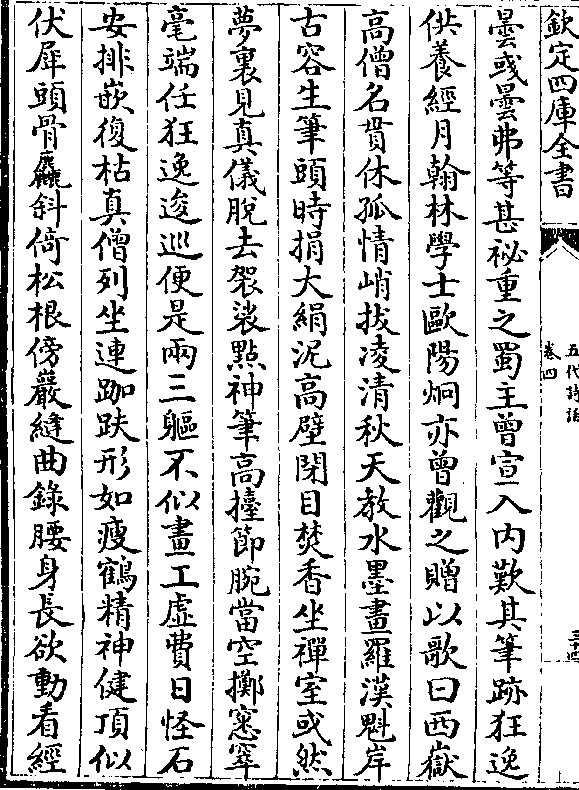 欽定四庫全書
五代詩話
卷四
三十四
曇或曇弗等甚祕重之蜀主曾宣入内歎其筆跡狂逸
供養經月翰林學士歐陽炯亦曾觀之贈以歌曰西嶽
高僧名貫休孤情峭拔凌清秋天教水墨畫羅漢魁岸
古容生筆頭時捐大絹泥高壁閉目焚香坐禪室或然
夢裏見真儀脫去袈裟㸃神筆高擡節腕當空擲窸窣
毫端任狂逸逡巡便是兩三軀不似畫工虛費日怪石
安排嵌復枯真僧列坐連跏趺形如瘦鶴精神健頂似
伏犀頭骨麤斜倚松根傍巖縫曲錄腰身長欲動看經